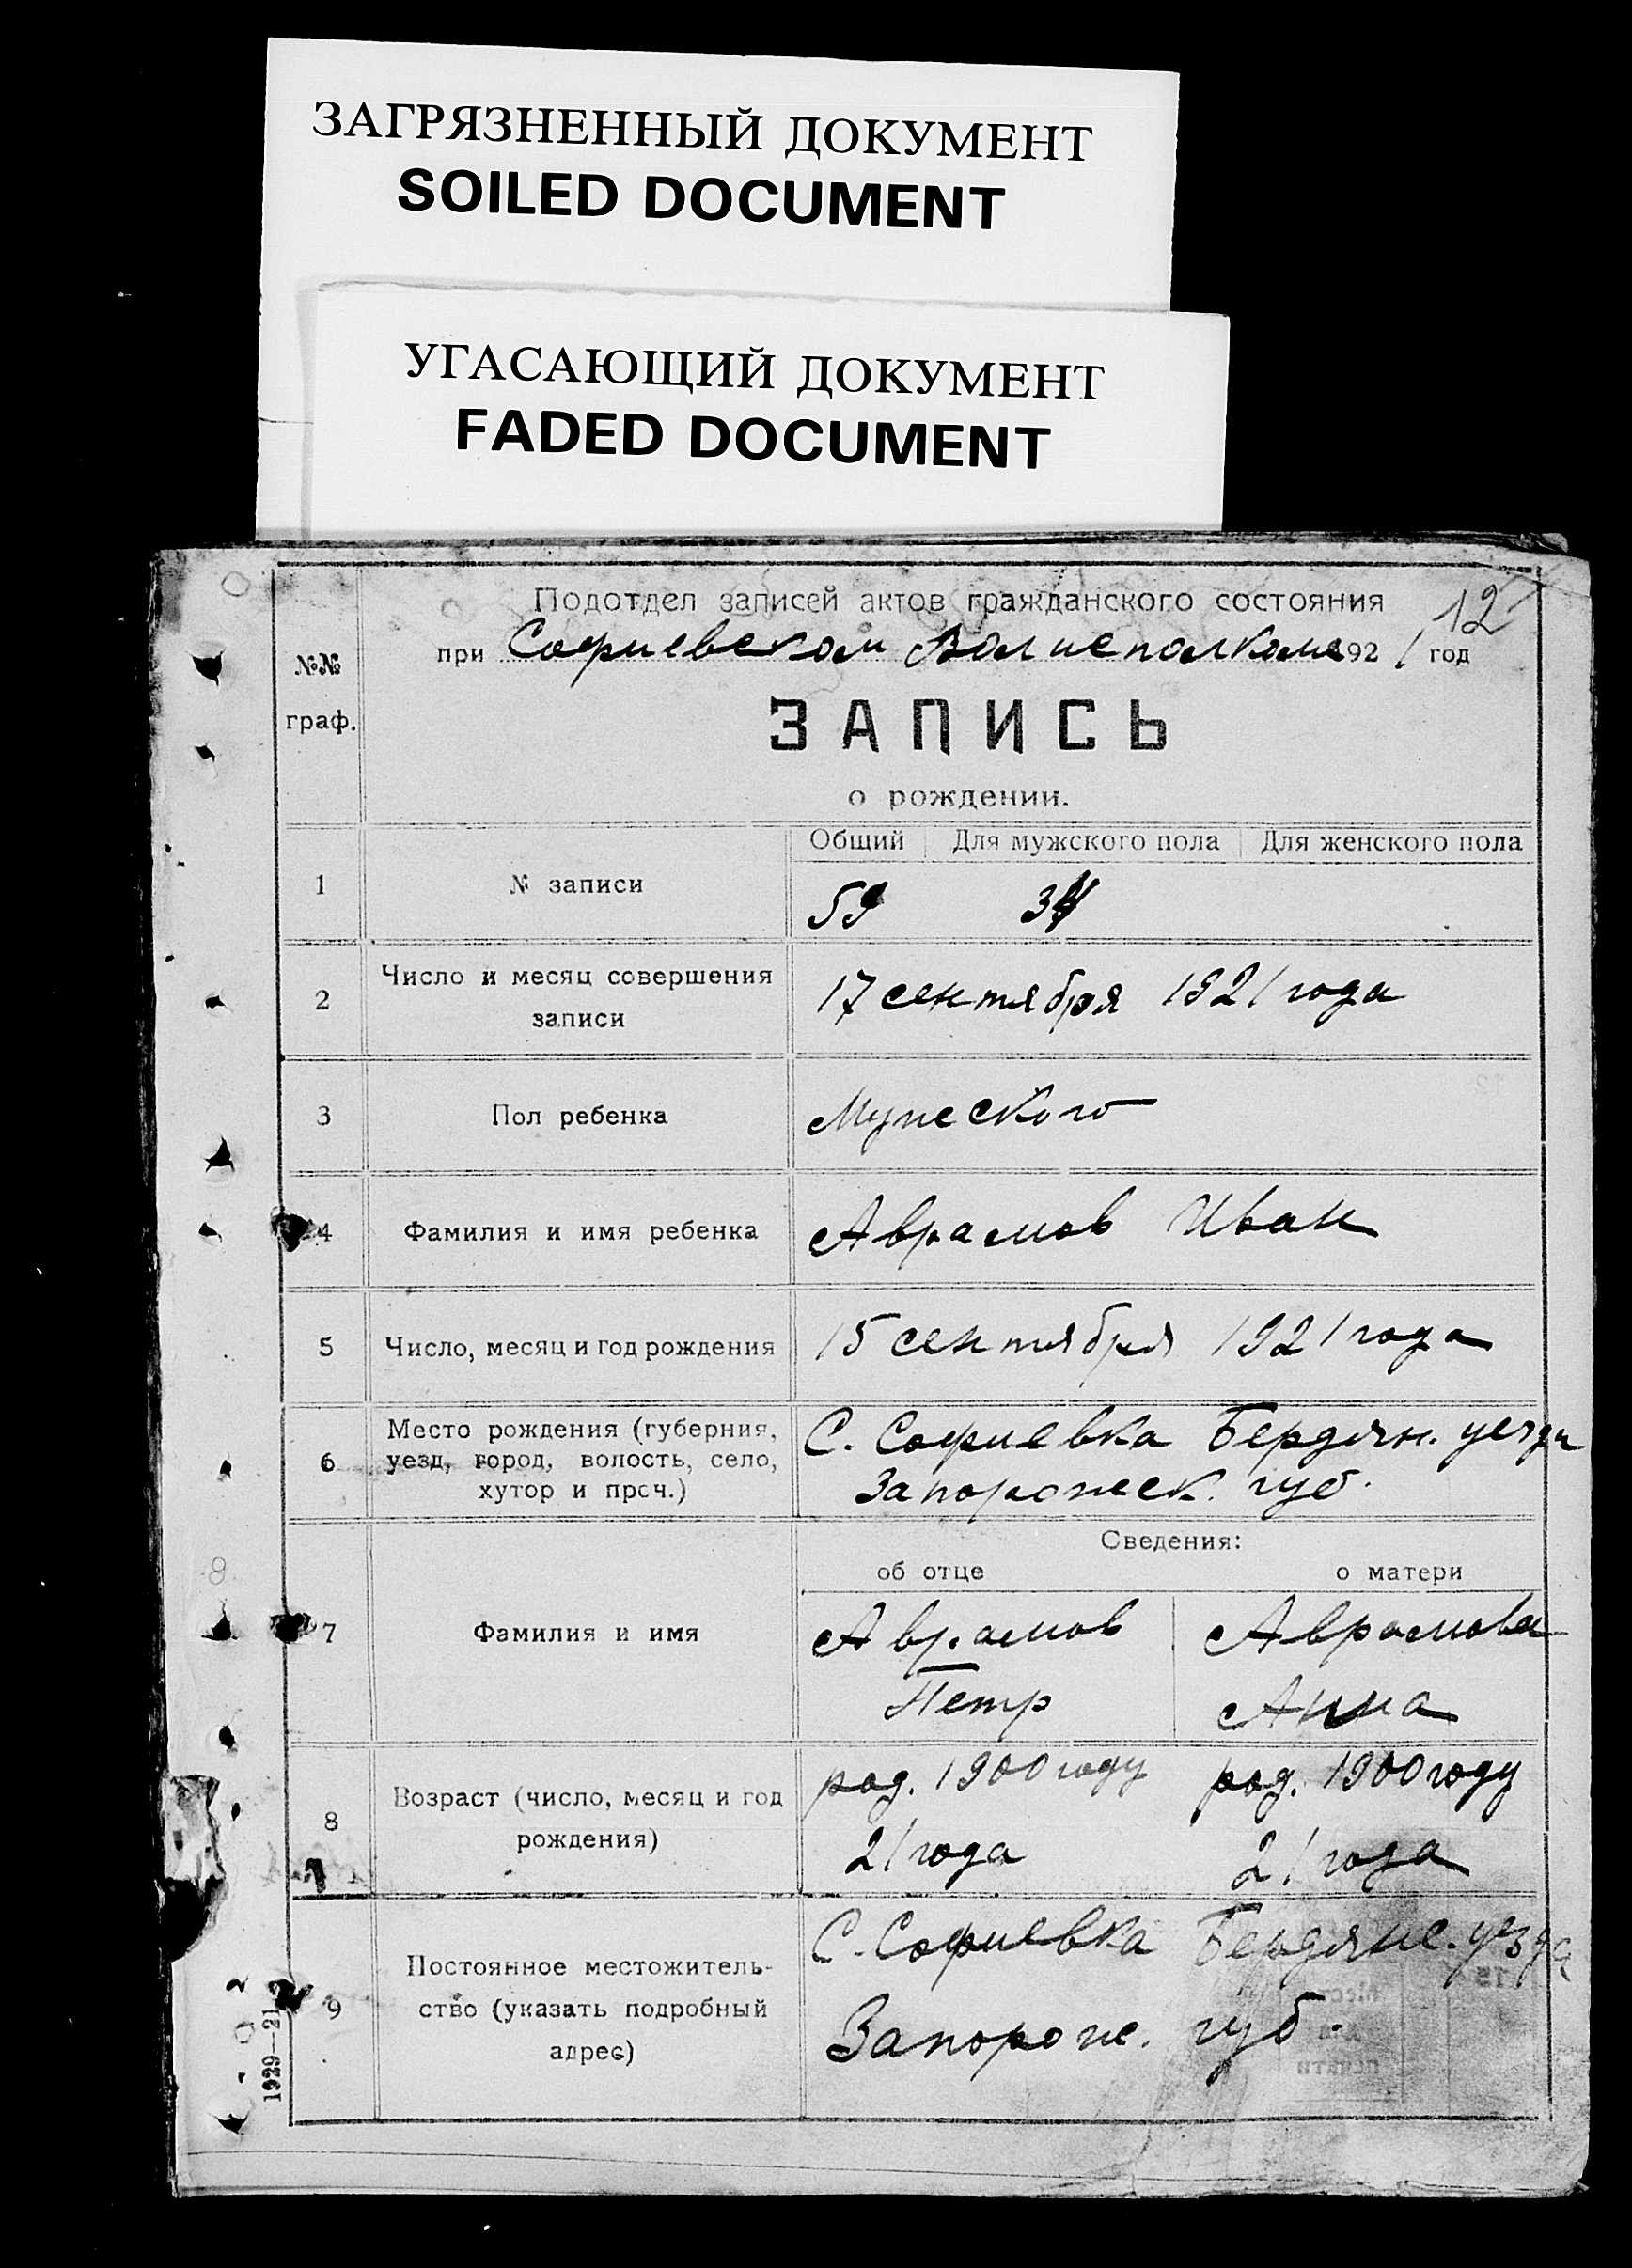 ЗАГРЯЗНЕННЫЙ ДОКУМЕНТ
SOILED DOCUMENT
УГАСАЮЩИЙ ДОКУМЕНТ
FADED DOCUMENT
12
Подотдел записей актов гражданского состояния
при Софиевском Волисполкоме 1921 год
№№ граф.
ЗАПИСЬ
о рождении.
Общий Для мужского пола Для женского пола
1 № записи 59
2 Число и месяц совершения записи 17 сентября 1921 года
3 Пол ребенка Мужеского
4 Фамилия и имя ребенка Аврамов Иван
5 Число, месяц и год рождения 15 сентября 1921 года
6 Место рождения (губерния, С. Софиевка Бердян. уезда
уезд, город, волость, село, Запорожск. губ.
хутор и проч.)
Сведения:
об отце о матери
7 Фамилия и имя Аврамов Аврамова
Петр Анна
8 Возраст (число, месяц и год род. 1900 году род. 1900 году
рождения) 21 года 21 года
9 Постоянное местожитель- С. Софиевка Бердянс. уезда
ство (указать подробный Запорож. губ.
адрес)
1929—21